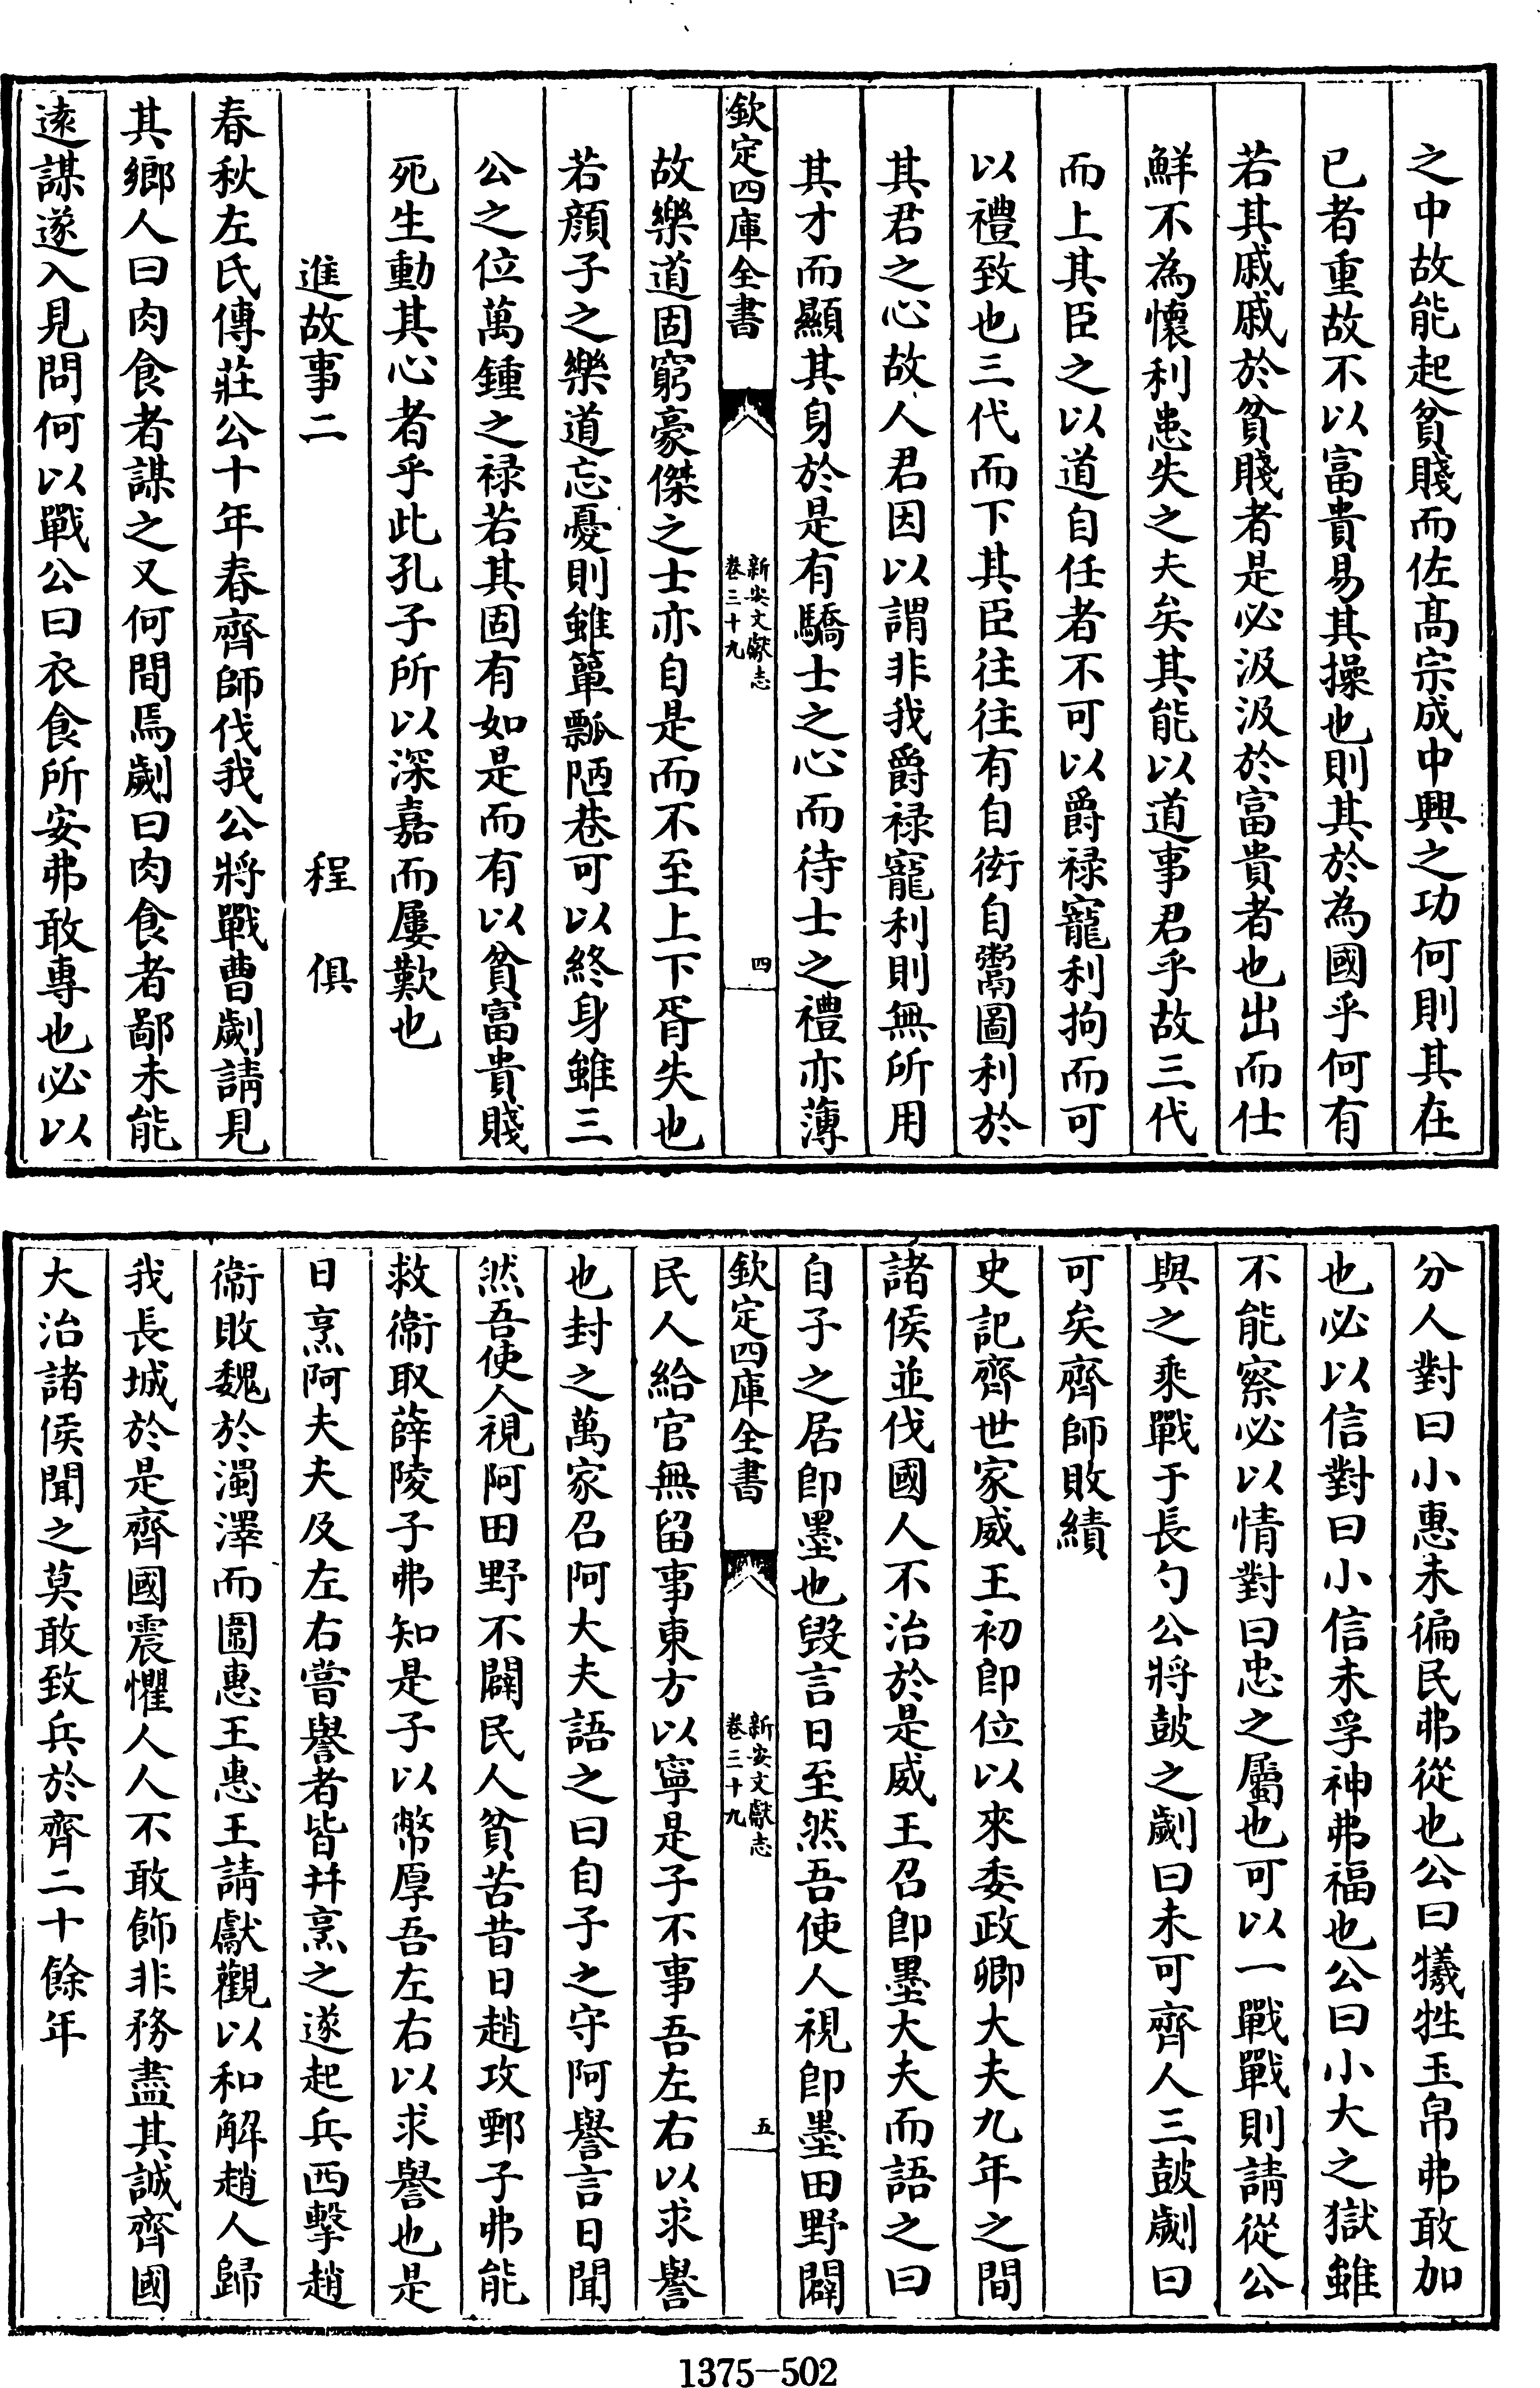 之中故能起貧賤而佐髙宗成中興之功何則其在
已者重故不以富貴易其操也則其於為國乎何有
若其戚戚於貧賤者是必汲汲於富貴者也出而仕
鮮不為懷利患失之夫矣其能以道事君乎故三代
而上其臣之以道自任者不可以爵禄寵利拘而可
以禮致也三代而下其臣往往有自衒自鬻圖利於
其君之心故人君因以謂非我爵禄寵利則無所用
其才而顯其身於是有驕士之心而待士之禮亦薄
欽定四庫全書
新安文獻志
卷三十九
四
故樂道固窮豪傑之士亦自是而不至上下胥失也
若顔子之樂道忘憂則雖簞瓢陋巷可以終身雖三
公之位萬鍾之禄若其固有如是而有以貧富貴賤
死生動其心者乎此孔子所以深嘉而屢歎也
進故事二
程俱
春秋左氏傳莊公十年春齊師伐我公將戰曹劌請見
其鄉人曰肉食者謀之又何間焉劌曰肉食者鄙未能
逺謀遂入見問何以戰公曰衣食所安弗敢專也必以
分人對曰小惠未徧民弗從也公曰犧牲玉帛弗敢加
也必以信對曰小信未孚神弗福也公曰小大之獄雖
不能察必以情對曰忠之屬也可以一戰戰則請從公
與之乘戰于長勺公將鼓之劌曰未可齊人三鼓劌曰
可矣齊師敗績
史記齊世家威王初即位以來委政卿大夫九年之間
諸侯並伐國人不治於是威王召即墨大夫而語之曰
自子之居即墨也毀言日至然吾使人視即墨田野闢
欽定四庫全書
新安文獻志
卷三十九
五
民人給官無留事東方以寧是子不事吾左右以求譽
也封之萬家召阿大夫語之曰自子之守阿譽言日聞
然吾使人視阿田野不闢民人貧苦昔日趙攻鄄子弗能
救衞取薛陵子弗知是子以幣厚吾左右以求譽也是
日烹阿大夫及左右嘗譽者皆并烹之遂起兵西擊趙
衞敗魏於濁澤而圍惠王惠王請獻觀以和解趙人歸
我長城於是齊國震懼人人不敢飾非務盡其誠齊國
大治諸侯聞之莫敢致兵於齊二十餘年
1375-502